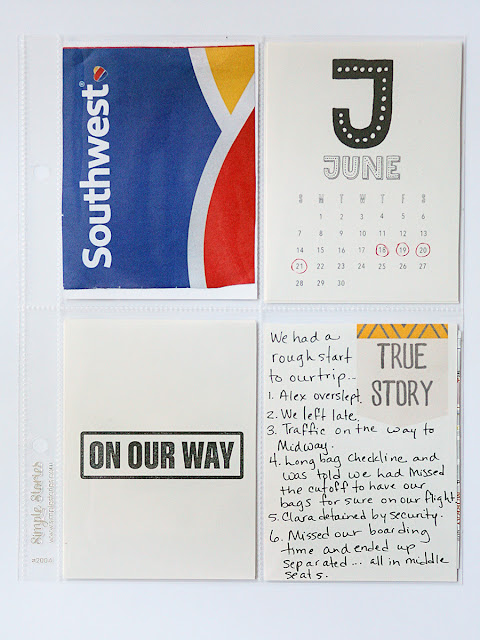 Southwest
J
JUNE
S M T W T F S
1 2 3 4 5 6
7 8 9 10 11 12 13
14 15 16 17 18 19 20
21 22 23 24 25 26 27
28 29 30
ON OUR WAY
TRUE
STORY
We had a
rough start
to our trip...
1. Alex overslept.
2. We left late.
3. Traffic on the way to
Midway.
4. Long bag check line and
was told we had missed
the cutoff to have our
bags for sure on our flight.
5. Clara detained by security.
6. Missed our boarding
time and ended up
separated... all in middle
seats.
Simple Stories